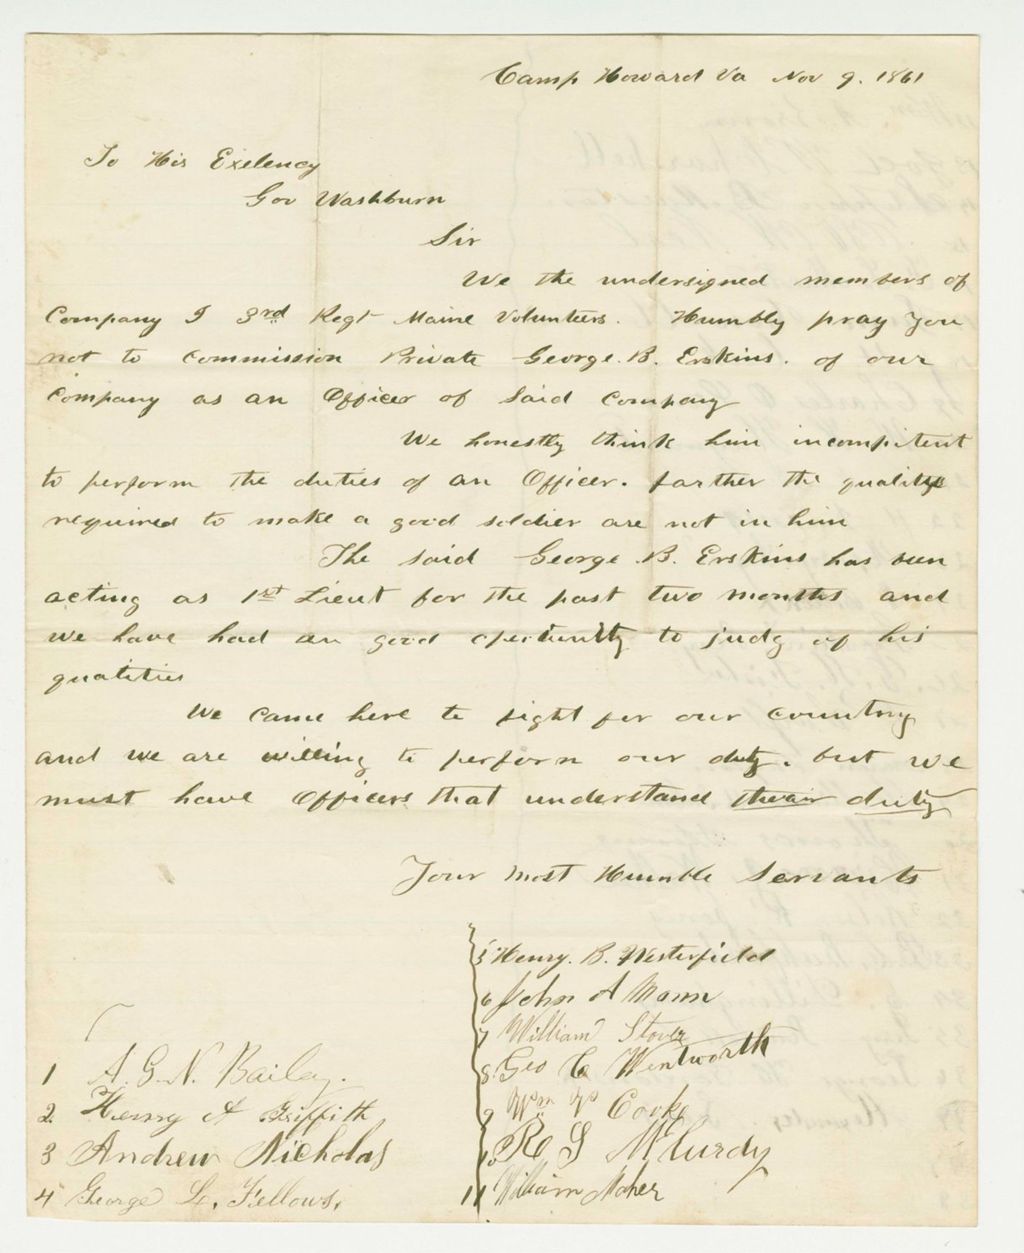 Camp Howard Va Nov 9. 1861
To His Exelency
Gov Washburn
Sir
We the undersigned members of
Company I 3rd Regt Maine Volunteers. Humbly pray you
not to commission Private George. B. Erskins. of our
Company as an Officer of Said Company
We honestly think him incompitent
to perform the duties of an Officer. farther the qualitys
required to make a good soldier are not in him
The said George. B. Erskins has been
acting as 1st Lieut for the past two months and
we have had an good opertunity to judg of his
qualities
We came here to fight for our country
and we are willing to perform our duty. but we
must have Officers that understand theair duty
Your most Humble Servants
1 A. G. N. Bailey.
2. Henry A Griffith
3 Andrew Nicholas
4 George L. Fellows.
5 Henry. B. Westerfield
6 John A Mann
7 William Stover
8. Geo C Wentworth
9 Wm Cooke
10 R S McCurdy
11 William Maher